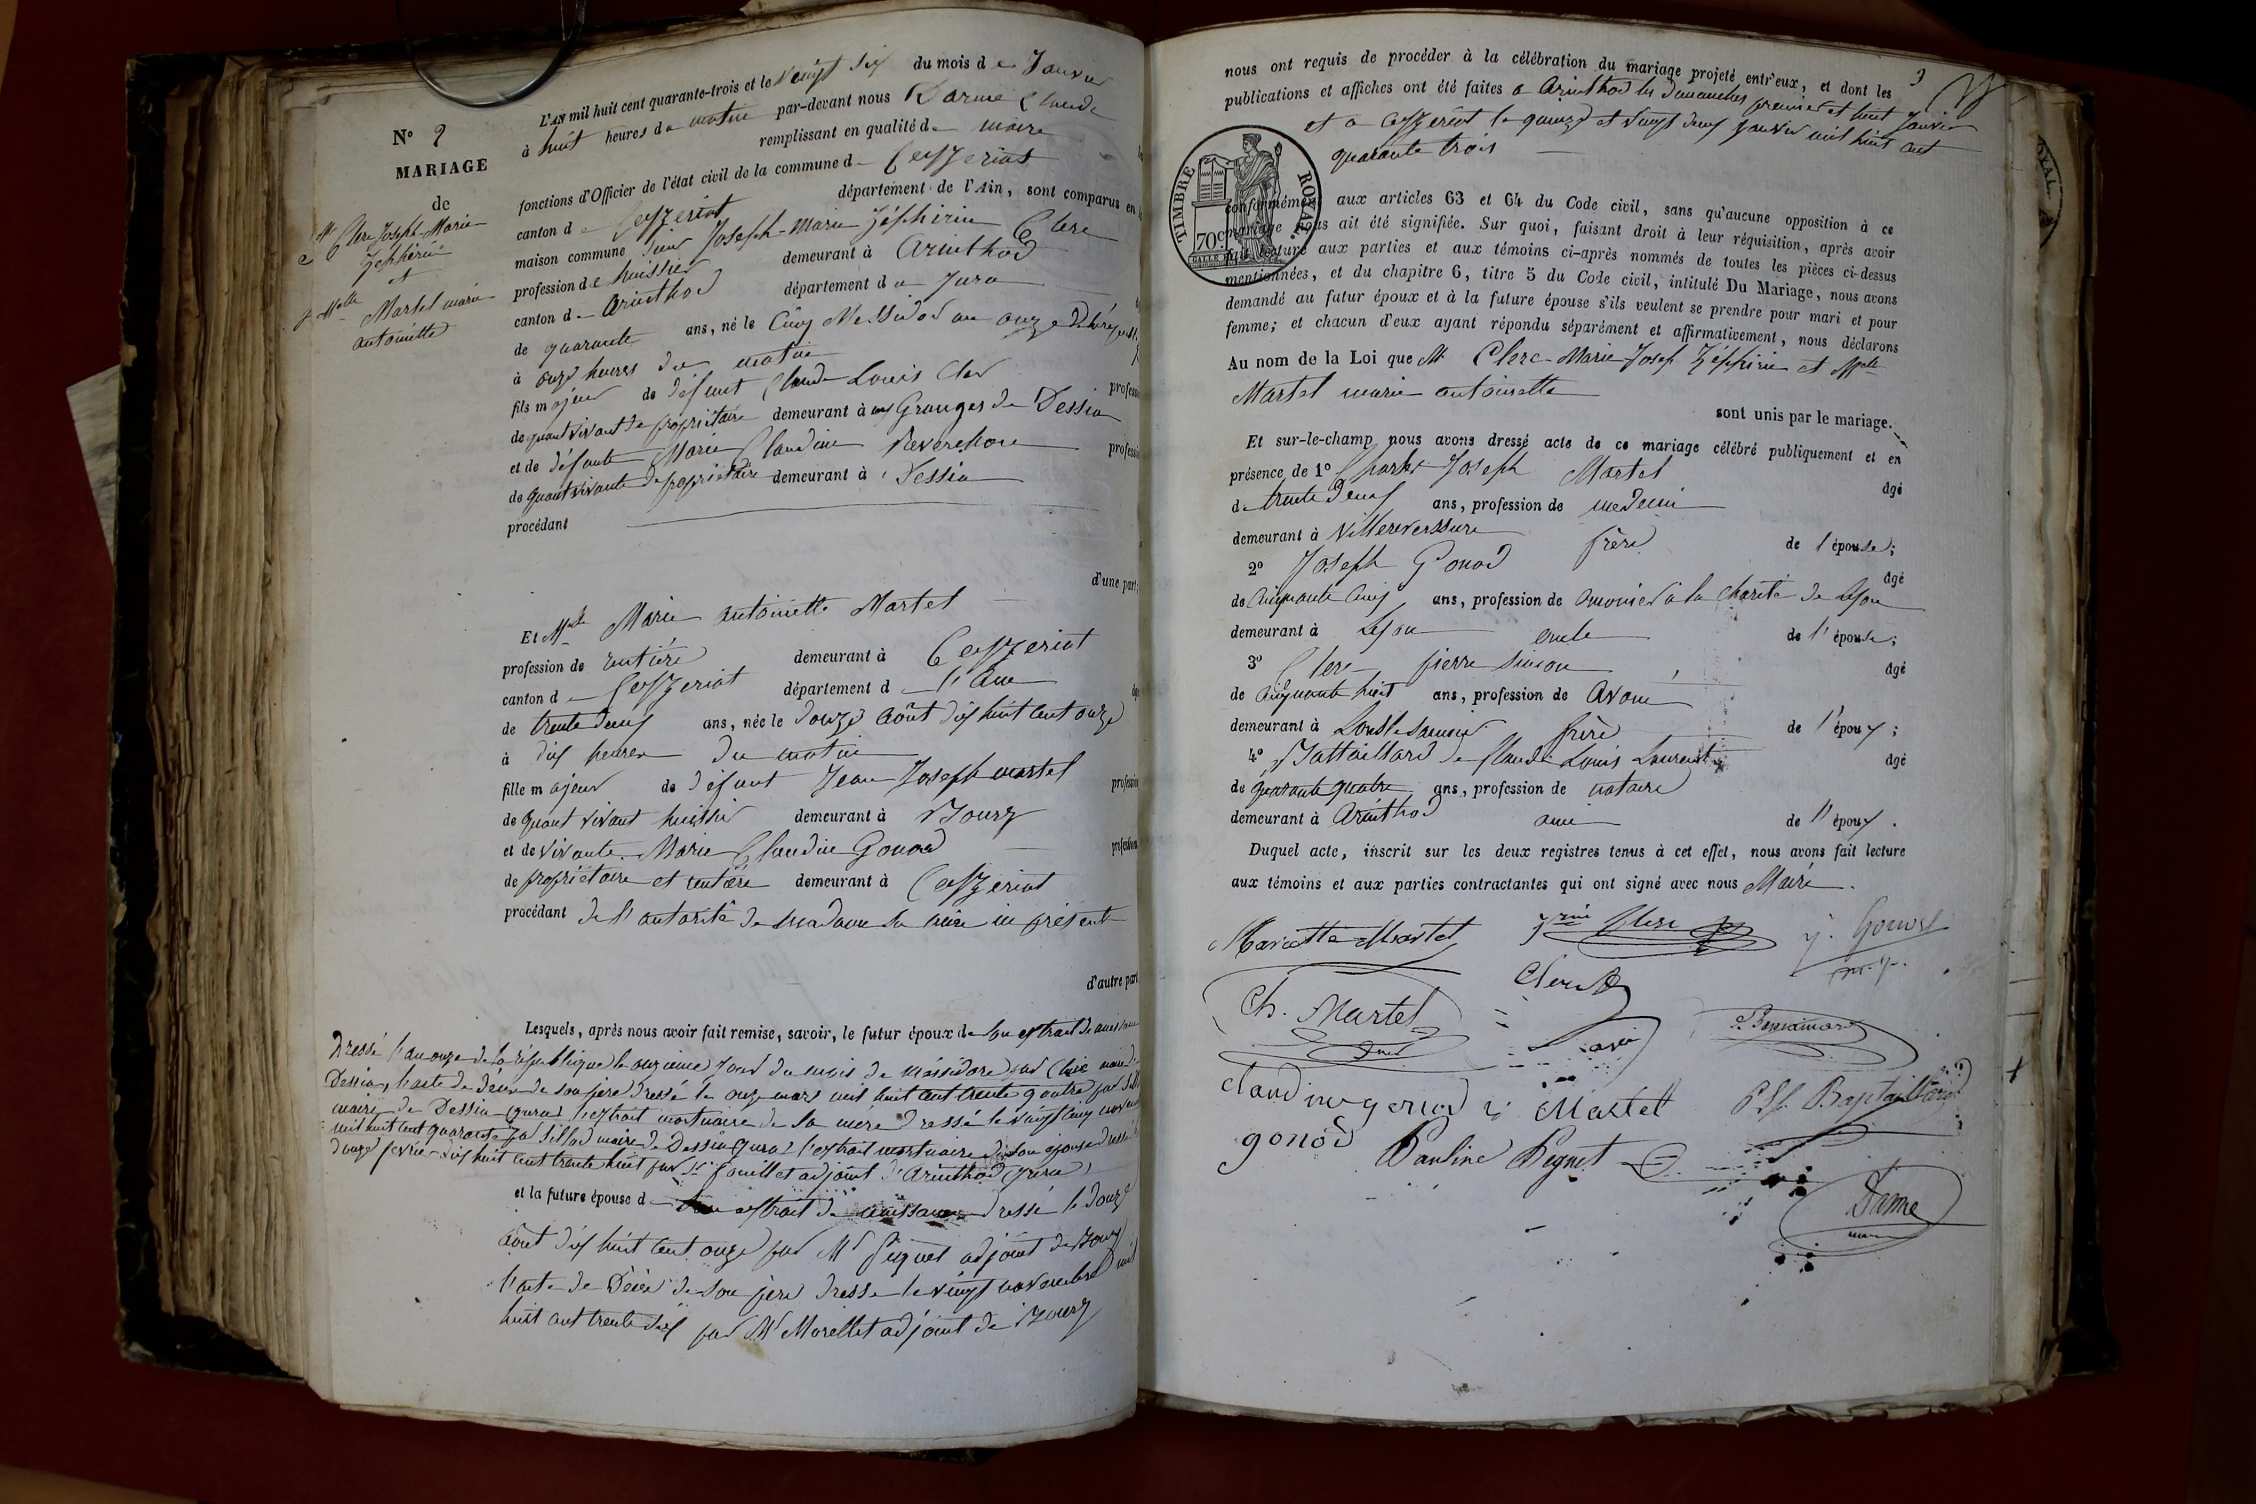 N° 2
MARIAGE
de
Mr Clerc Joseph-Marie
Zéphirin
et
Melle Martel marie
antoinette
L'AN mil huit cent quarante-trois et le vingt six du mois de Janvier
à huit heures du matin par-devant nous Darme Claude
remplissant en qualité de maire
fonctions d'Officier de l'état civil de la commune de Ceyzeriat
canton de Ceyzeriat département de l'Ain, sont comparus en
maison commune Joseph-Marie Zéphirin Clerc
profession de huissier demeurant à Arinthod
canton d'Arinthod département du Jura
de quarante ans, né le Cinq Messidor an onze
à onze heures du matin
fils majeur de défunt Claude Louis Clerc profess
de quant vivant propriétaire demeurant à aux Granges de Dessia
et de défunte Marie Claudine profess
de quant vivante propriétaire demeurant à Dessia
procédant
d'une part;
Et Melle Marie antoinette Martel
profession de rentière demeurant à Ceyzeriat
canton de Ceyzeriat département de l'Ain
de trente deux ans, née le douze août dix huit cent onze
à dix heures du matin
fille majeur de défunt Jean Joseph martel profession
de quant vivant huissier demeurant à Bourg
et de vivante Marie Claudine Gonod profession
de propriétaire et rentière demeurant à Ceyzeriat
procédant de l'autorité de madame sa mère ici présente
d'autre part
Lesquels, après nous avoir fait remise, savoir, le futur époux de son extrait de naissance
Dressé l'an onze de la république le onzième jour du mois de messidore par maire de
Dessia, l'acte de décès de son père dressé le onze mars mil huit cent trente quatre par
maire de Dessia (jura) l'extrait mortuaire de sa mère dressé le vingt cinq
mil huit cent quarante par maire de Dessia (jura) l'extrait mortuaire de son épouse dressé
douze février dix huit cent trente huit par adjoint d'Arinthod (jura)
et la future épouse de son extrait de naissance dressé le douze
août dix huit cent onze par Mr Piquet adjoint de Bourg
l'acte de Décès de son père dressé le vingt novembre mil
huit cent trente six par Mr Morellet adjoint de Bourg
3
nous ont requis de procéder à la célébration du mariage projeté entr'eux, et dont les
publications et affiches ont été faites à Arinthod les Dimanches premier et huit Janvier
et à Ceyzeriat le quinze et vingt deux janvier mil huit cent
quarante trois
TIMBRE ROYAL
70c
conformément aux articles 63 et 64 du Code civil, sans qu'aucune opposition à ce
mariage nous ait été signifiée. Sur quoi, faisant droit à leur réquisition, après avoir
fait lecture aux parties et aux témoins ci-après nommés de toutes les pièces ci-dessus
mentionnées, et du chapitre 6, titre 5 du Code civil, intitulé Du Mariage, nous avons
demandé au futur époux et à la future épouse s'ils veulent se prendre pour mari et pour
femme; et chacun d'eux ayant répondu séparément et affirmativement, nous déclarons
Au nom de la Loi que Mr Clerc-Marie-Josef Zéphirin et Melle
Martel marie antoinette
sont unis par le mariage.
Et sur-le-champ nous avons dressé acte de ce mariage célébré publiquement et en
présence de 1° Charles Joseph Martel âgé
de trente deux ans, profession de medecin
demeurant à Villereversure frère de l'épouse;
2° Joseph Gonod âgé
de Cinquante Cinq ans, profession de omonier à la charité de Lyon
demeurant à Lyon oncle de l'épouse;
3° Clerc pierre simon âgé
de cinquante huit ans, profession de avoué
demeurant à Lonslesaunier frère de l'époux;
4° Battaillard de Claude Louis Laurent âgé
de quarante quatre ans, profession de notaire
demeurant à Arinthod ami de l'époux.
Duquel acte, inscrit sur les deux registres tenus à cet effet, nous avons fait lecture
aux témoins et aux parties contractantes qui ont signé avec nous Maire.
Mariette Martel Zrin Clerc J. Gonod
Ch. Martel Clerc
claudine gonod Martel
gonod Pauline Peguet
Darme